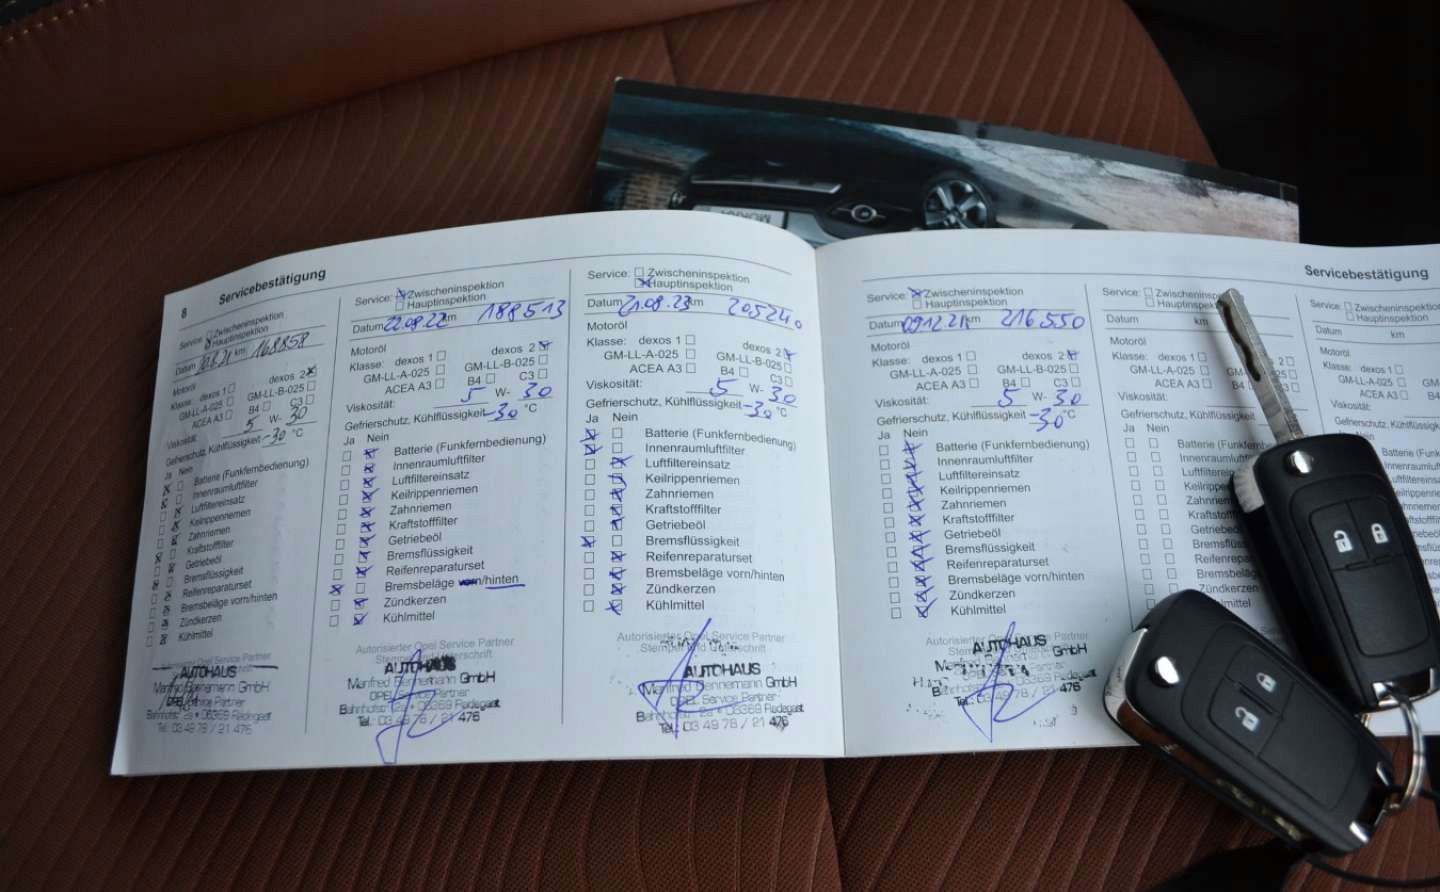 8
Servicebestätigung
Service: Zwischeninspektion
Hauptinspektion
Datum km 168858
Motoröl
Klasse: dexos 1 dexos 2
GM-LL-A-025 GM-LL-B-025
ACEA A3 B4 C3
Viskosität: 5 W- 30
Gefrierschutz, Kühlflüssigkeit -30 °C
Ja Nein
Batterie (Funkfernbedienung)
Innenraumluftfilter
Luftfiltereinsatz
Keilrippenriemen
Zahnriemen
Kraftstofffilter
Getriebeöl
Bremsflüssigkeit
Reifenreparaturset
Bremsbeläge vorn/hinten
Zündkerzen
Kühlmittel
Autorisierter Opel Service Partner
AUTOHAUS
Manfred Bennemann GmbH
OPEL Service Partner
Bahnhofstr. 2a • 06369 Radegast
Tel.: 03 49 78 / 21 476
Service: Zwischeninspektion
Hauptinspektion
Datum 22.08.22 km 188513
Motoröl
Klasse: dexos 1 dexos 2
GM-LL-A-025 GM-LL-B-025
ACEA A3 B4 C3
Viskosität: 5 W- 30
Gefrierschutz, Kühlflüssigkeit -30 °C
Ja Nein
Batterie (Funkfernbedienung)
Innenraumluftfilter
Luftfiltereinsatz
Keilrippenriemen
Zahnriemen
Kraftstofffilter
Getriebeöl
Bremsflüssigkeit
Reifenreparaturset
Bremsbeläge vorn/hinten
Zündkerzen
Kühlmittel
Autorisierter Opel Service Partner
Stempel und Unterschrift
AUTOHAUS
Manfred Bennemann GmbH
OPEL Service Partner
Bahnhofstr. 2a • 06369 Radegast
Tel.: 03 49 78 / 21 476
Service: Zwischeninspektion
Hauptinspektion
Datum 21.08.23 km 205240
Motoröl
Klasse: dexos 1 dexos 2
GM-LL-A-025 GM-LL-B-025
ACEA A3 B4 C3
Viskosität: 5 W- 30
Gefrierschutz, Kühlflüssigkeit -30 °C
Ja Nein
Batterie (Funkfernbedienung)
Innenraumluftfilter
Luftfiltereinsatz
Keilrippenriemen
Zahnriemen
Kraftstofffilter
Getriebeöl
Bremsflüssigkeit
Reifenreparaturset
Bremsbeläge vorn/hinten
Zündkerzen
Kühlmittel
Autorisierter Opel Service Partner
Stempel und Unterschrift
AUTOHAUS
Manfred Bennemann GmbH
OPEL Service Partner
Bahnhofstr. 2a • 06369 Radegast
Tel.: 03 49 78 / 21 476
Servicebestätigung
Service: Zwischeninspektion
Hauptinspektion
Datum km 216550
Motoröl
Klasse: dexos 1 dexos 2
GM-LL-A-025 GM-LL-B-025
ACEA A3 B4 C3
Viskosität: 5 W- 30
Gefrierschutz, Kühlflüssigkeit -30 °C
Ja Nein
Batterie (Funkfernbedienung)
Innenraumluftfilter
Luftfiltereinsatz
Keilrippenriemen
Zahnriemen
Kraftstofffilter
Getriebeöl
Bremsflüssigkeit
Reifenreparaturset
Bremsbeläge vorn/hinten
Zündkerzen
Kühlmittel
AUTOHAUS
GmbH
Service:
Datum km
Motoröl
Klasse: dexos 1
GM-LL-A-025
ACEA A3
Viskosität:
Gefrierschutz, Kühlflüssigkeit
Ja Nein
Zündkerzen
Kühlmittel
Service: Zwischeninspektion
Hauptinspektion
Datum km
Motoröl
Klasse: dexos 1
GM-LL-A-025
ACEA A3
Viskosität: